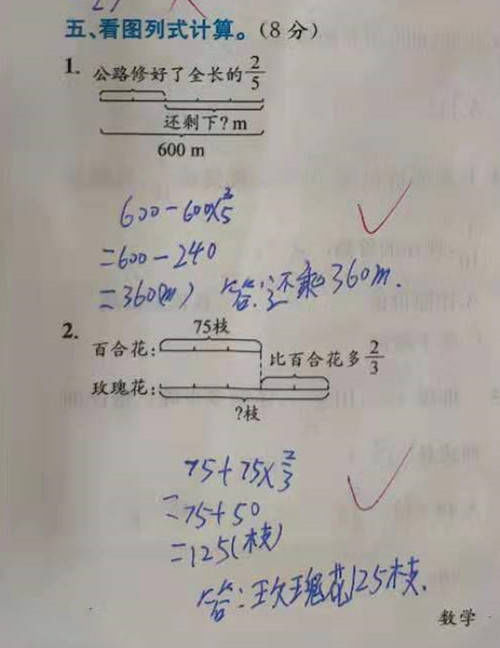 五、看图列式计算。(8分)
1. 公路修好了全长的2/5
还剩下?m
600 m
600-600×2/5
=600-240
=360(m) 答:还剩360m.
2. 75枝
百合花: 比百合花多2/3
玫瑰花:
?枝
75+75×2/3
=75+50
=125(枝)
答:玫瑰花125枝.
数学